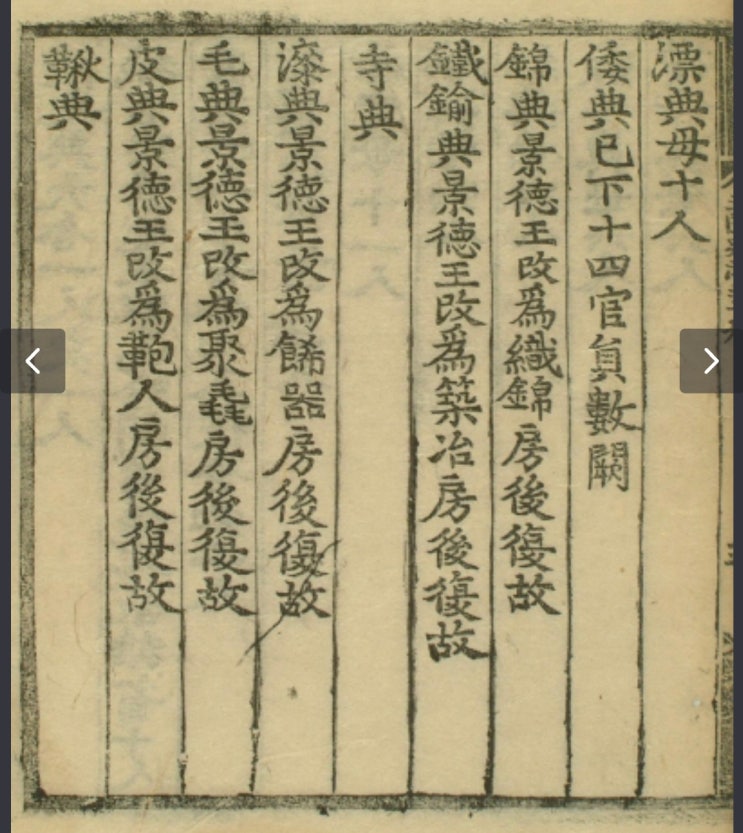 漂典母十人
倭典已下十四官員數闕
錦典景德王改爲織錦房後復故
鐵鍮典景德王改爲築冶房後復故
寺典
漆典景德王改爲飾器房後復故
毛典景德王改爲聚毳房後復故
皮典景德王改爲鞄人房後復故
鞦典